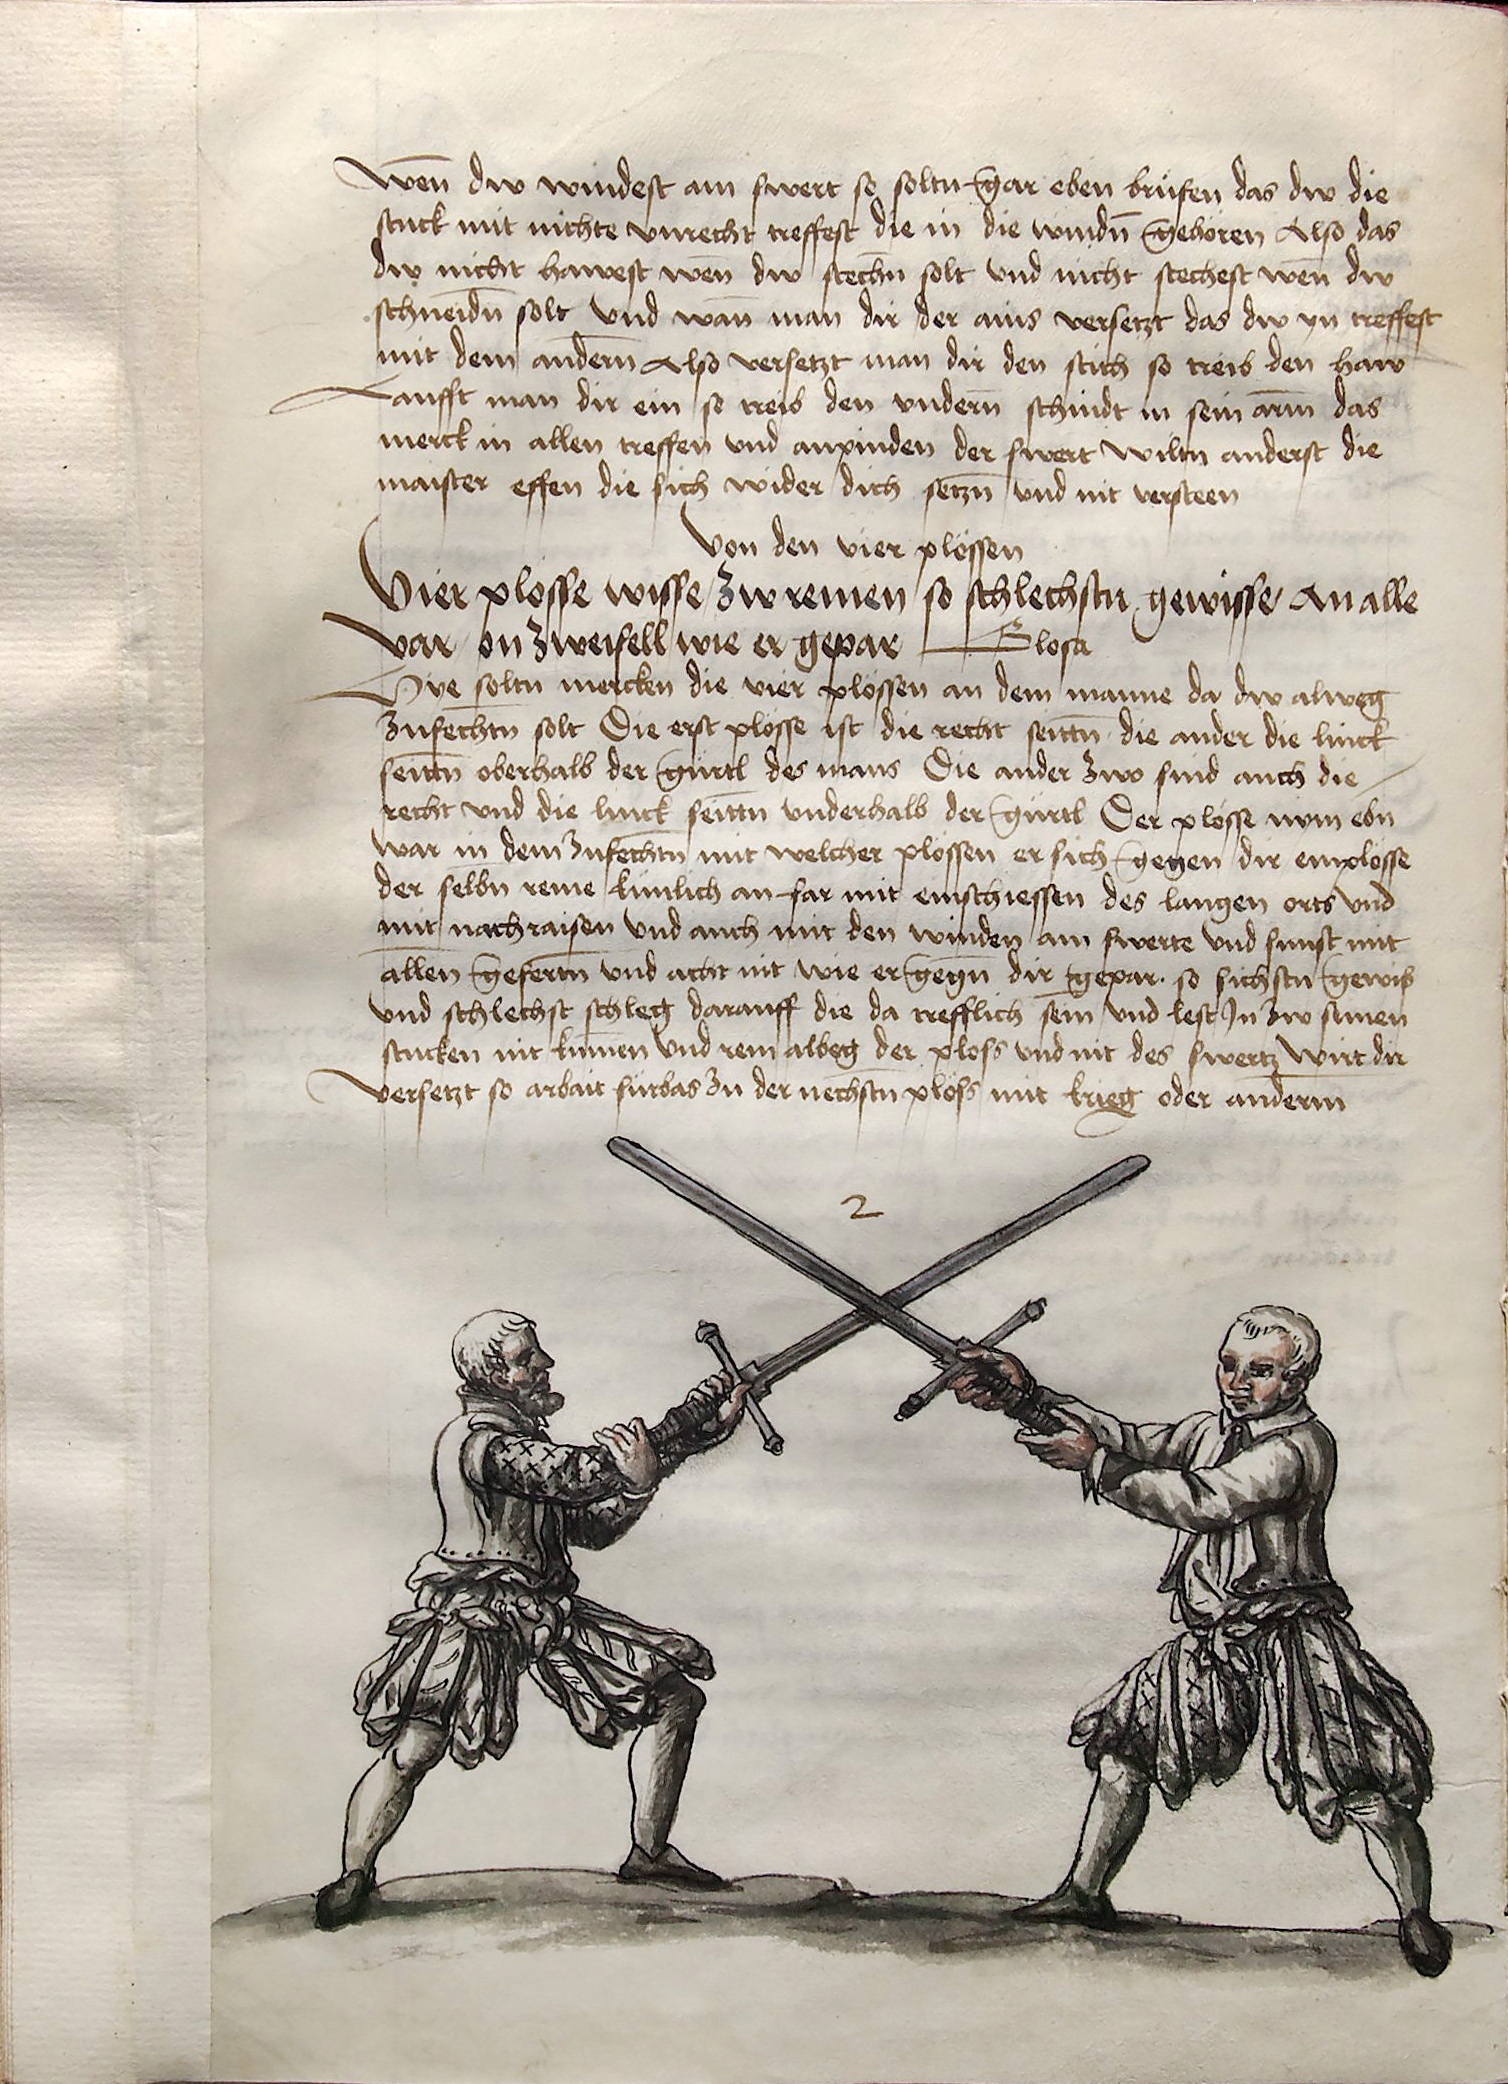 Wen̄ dw windest am swert so soltu gar eben brüfen das dw die
stuck mit nichte vnrecht treffest die in die windn̄ gehören Also das
dw nicht hawest wen̄ dw stechn̄ solt vnd nicht stechest wen̄ dw
schneidn̄ solt vnd wan̄ man dir der ains versetzt das dw yn treffest
mit dem andern̄ Also versetzt man dir den stich so treib den haw
Laufft man dir ein so treib den vndern̄ schnidt in sein arm̄ das
merck in allen treffen vnd anpinden der swert wiltu anderst die
maister effen die sich wider dich setzn̄ vnd nit versteen
Von den vier plössen
Vier plösse wisse / zw remen so schlechstu gewisse / An alle
var / on zweifell wie er gepar Glosa
Hye soltu mercken die vier plössen an dem manne da dw alweg
zufechtn̄ solt Die erst plösse ist die recht seittn̄ die ander die linck
seittn̄ oberhalb der gürtl des mans Die ander zwo sind auch die
recht vnd die linck seittn̄ vnderhalb der gürtl Der plösse nym ebn
war in dem zufechtn̄ mit welcher plössen er sich gegen dir emplösse
der selbn reme künlich an far mit einschiessen des langen orts vnd
mit nachraisen vnd auch mit den winden am swerte vnd sunst mit
allen gefertn̄ vnd acht nit wie er gegn̄ dir gepar so fichstu gewiß
vnd schlechst schleg darauff die da trefflich sein vnd lest In zw seinen
stucken nit kumen vnd rem albeg der ploss vnd nit des swertz wirt dir
versetzt so arbait fürbas zu der nechstn̄ plöss mit krieg oder anderm
2